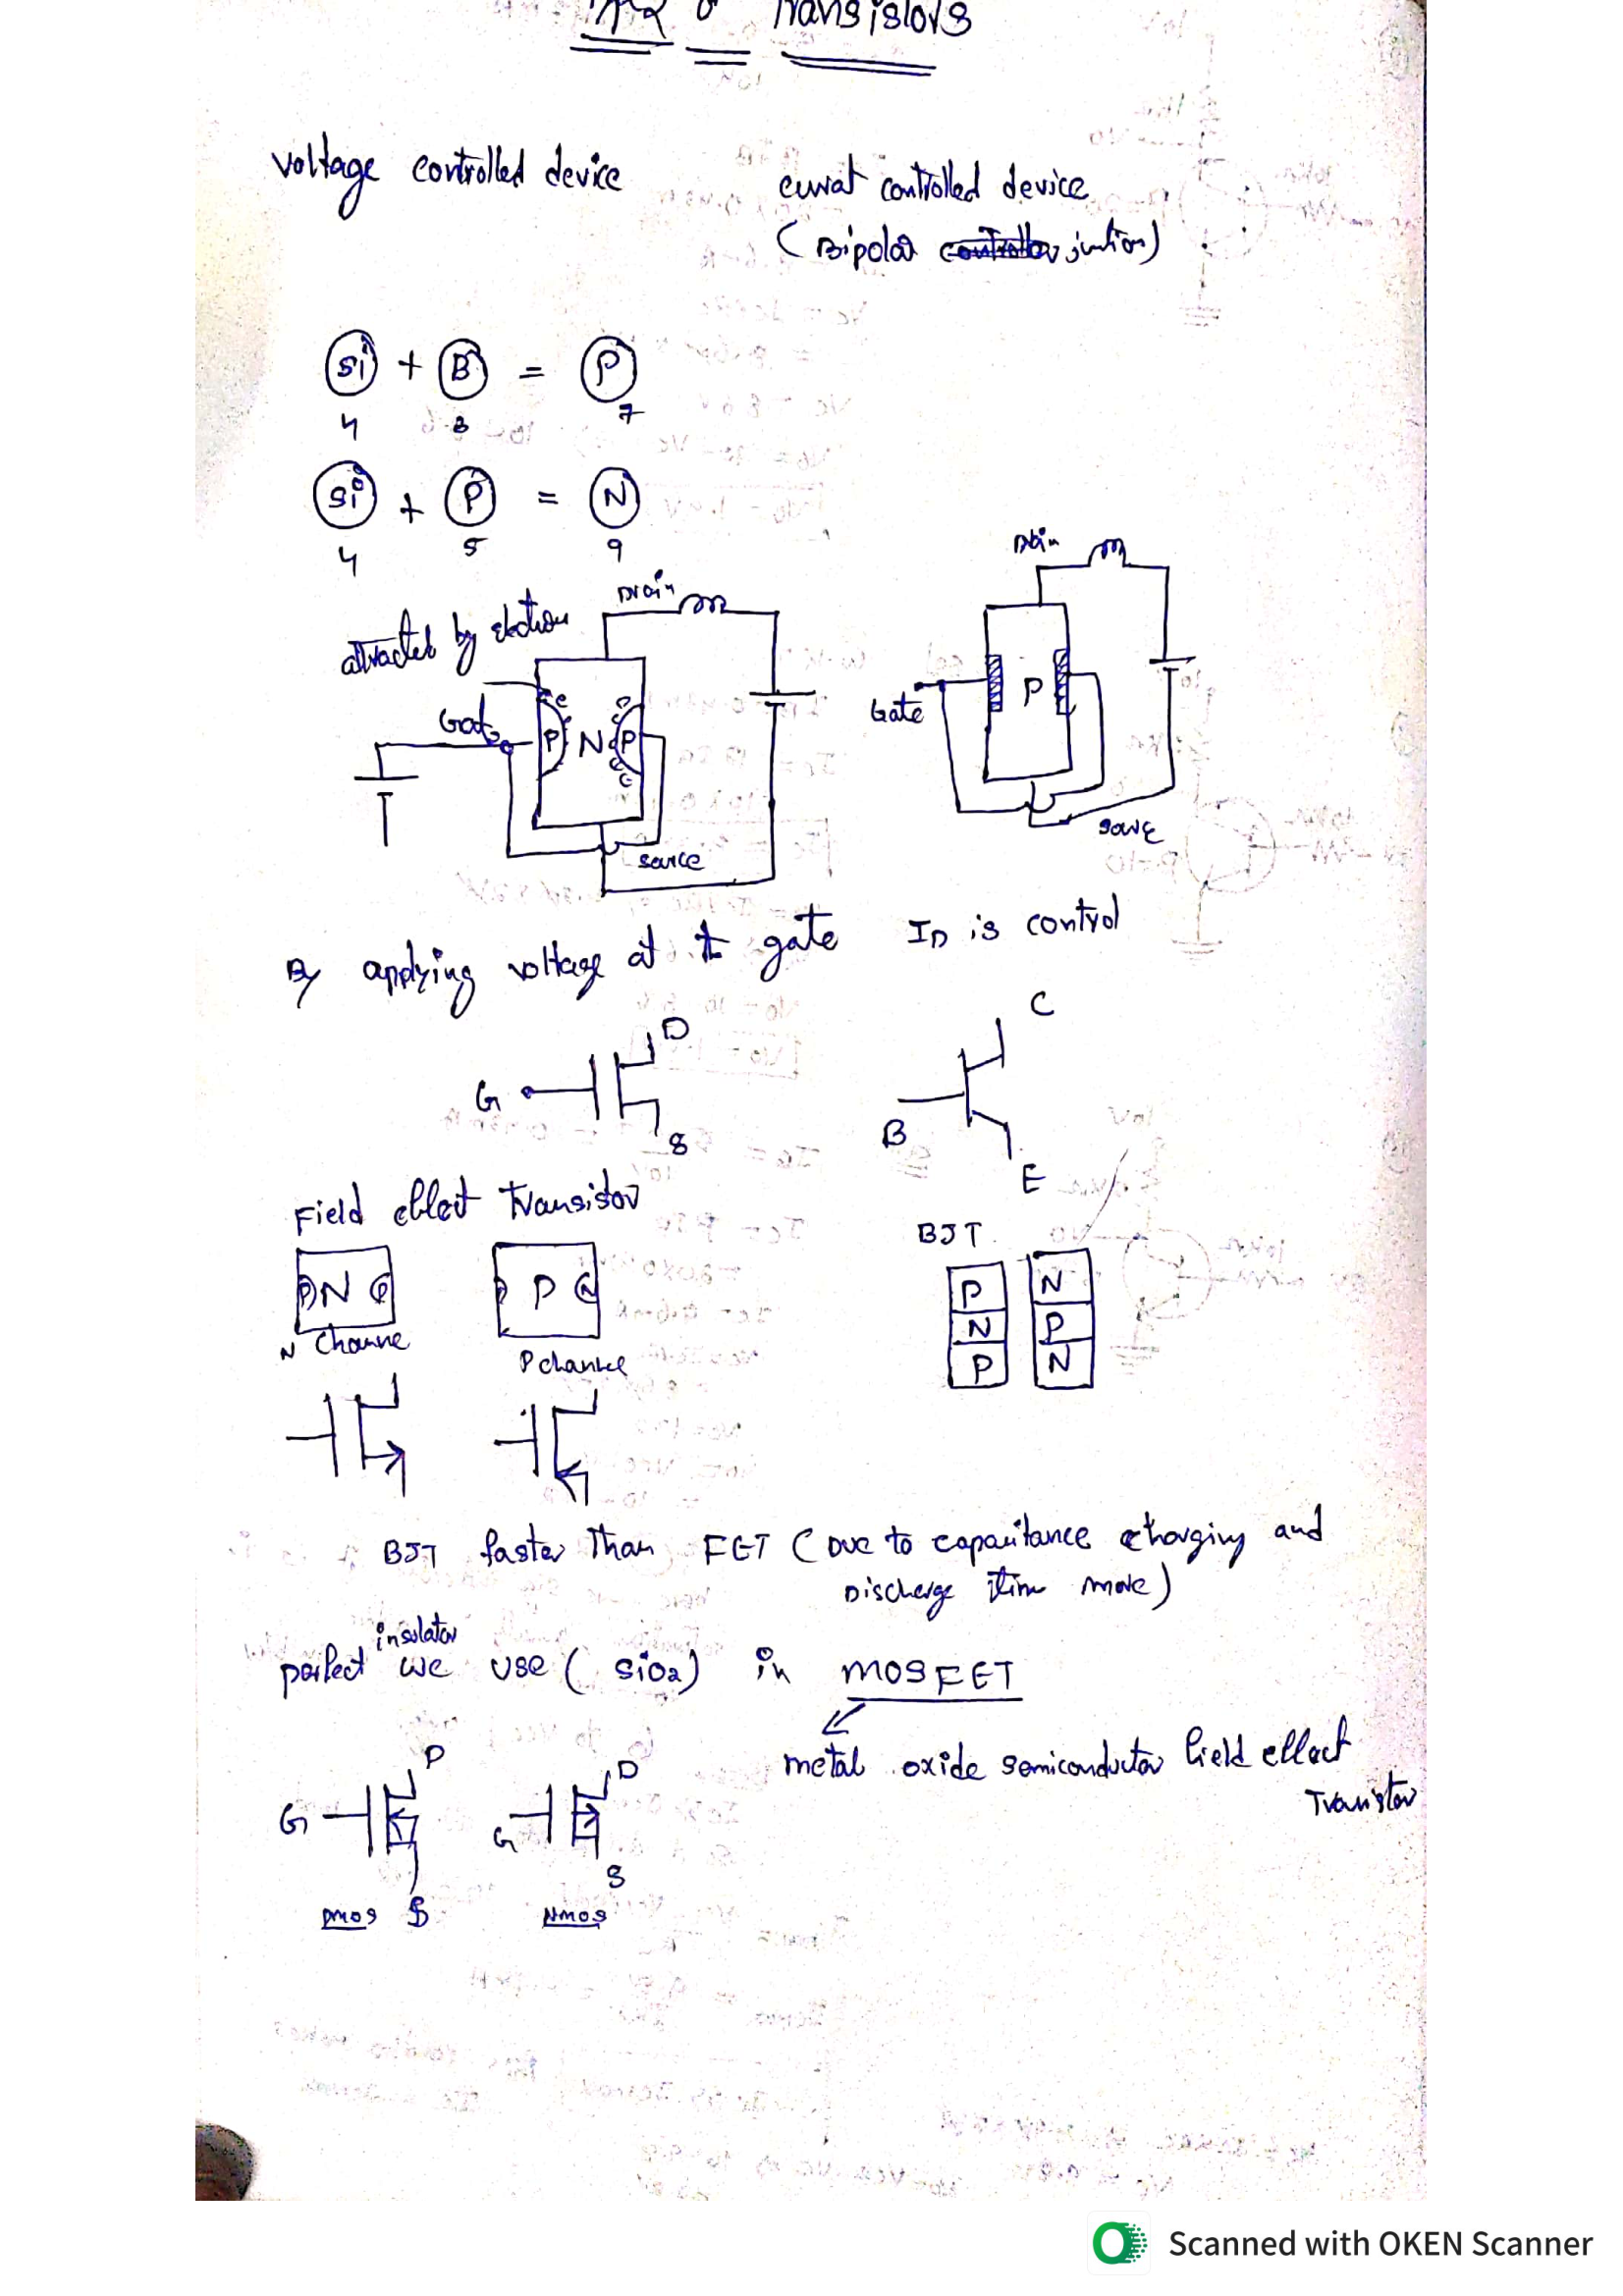 Transistors
voltage controlled device
curat controlled device
(Bipolar junction)
Si + B = P
4 3 7
Si + P = N
4 5 9
attracted by electron
Drain
Gate
e
P N P
source
Drain
Gate
P
source
By applying voltage at the gate ID is control
G D S
C
B
E
Field effect Transistor
BJT
P N P
N Channe
P
P channel
P
N
P
N
P
N
BJT faster Than FET (Due to capacitance charging and
Discharge time more)
insulator
perfect we use (SiO2) in MOSFET
metal oxide semiconductor field effect
Transistor
G D S
G D S
PMOS
NMOS
Scanned with OKEN Scanner